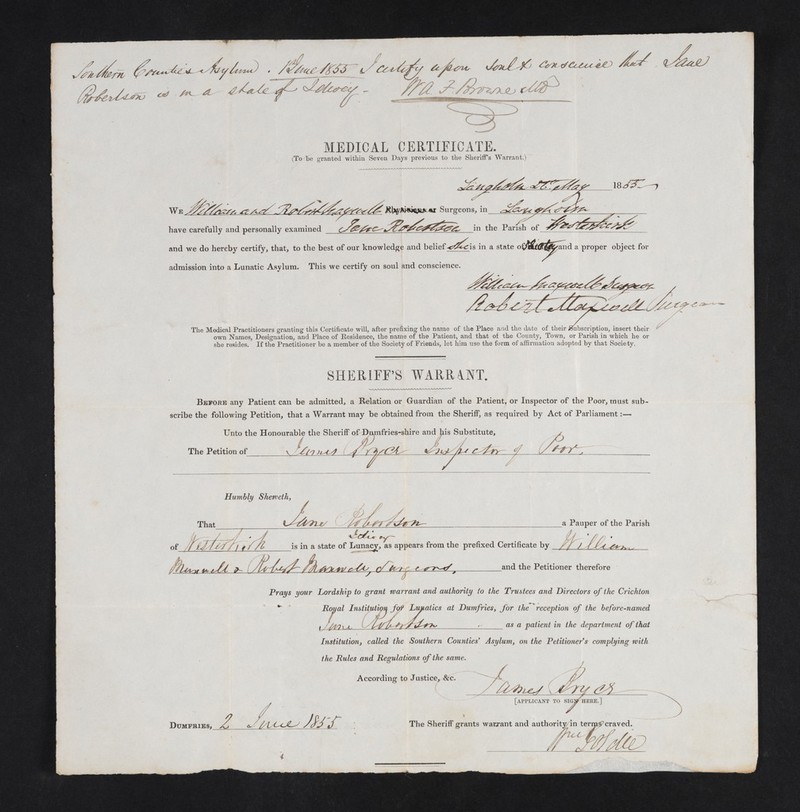 Southern Counties Asylum. 1 June 1855 I certify upon soul & conscience that Jane
Robertson is in a state of Idiocy - W A F Browne MD
MEDICAL CERTIFICATE.
(To be granted within Seven Days previous to the Sheriff's Warrant.)
Langholm 26th May 1855.
WE William and Robert Maxwell Physicians or Surgeons, in Langholm
have carefully and personally examined Jane Robertson in the Parish of Westerkirk
and we do hereby certify, that, to the best of our knowledge and belief she is in a state of and a proper object for
admission into a Lunatic Asylum. This we certify on soul and conscience.
William Maxwell Surgeon
Robert Maxwell Surgeon
The Medical Practitioners granting this Certificate will, after prefixing the name of the Place and the date of their Subscription, insert their
own Names, Designation, and Place of Residence, the name of the Patient, and that of the County, Town, or Parish in which he or
she resides. If the Practitioner be a member of the Society of Friends, let him use the form of affirmation adopted by that Society.
SHERIFF'S WARRANT.
BEFORE any Patient can be admitted, a Relation or Guardian of the Patient, or Inspector of the Poor, must sub-
scribe the following Petition, that a Warrant may be obtained from the Sheriff, as required by Act of Parliament :—
Unto the Honourable the Sheriff of Dumfries-shire and his Substitute,
The Petition of James Bryce Inspector of Poor.
Humbly Sheweth,
That Jane Robertson a Pauper of the Parish
Idiocy
of Westerkirk is in a state of Lunacy, as appears from the prefixed Certificate by William
Maxwell & Robert Maxwell, Surgeons, and the Petitioner therefore
Prays your Lordship to grant warrant and authority to the Trustees and Directors of the Crichton
Royal Institution for Lunatics at Dumfries, for the reception of the before-named
Jane Robertson as a patient in the department of that
Institution, called the Southern Counties' Asylum, on the Petitioner's complying with
the Rules and Regulations of the same.
According to Justice, &c.
James Bryce
[APPLICANT TO SIGN HERE.]
DUMFRIES, 2 June 1855 The Sheriff grants warrant and authority in terms craved.
Wm Goldie